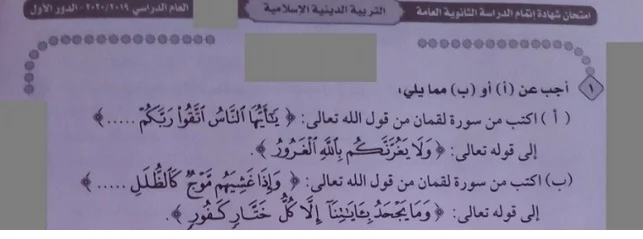 امتحان شهادة إتمام الدراسة الثانوية العامة التربية الدينية الإسلامية العام الدراسي ٢٠٢٠/٢٠١٩ - الدور الأول
١ أجب عن (أ) أو (ب) مما يلي:
(أ) اكتب من سورة لقمان من قول الله تعالى: ﴿ يَـٰٓأَيُّهَا ٱلنَّاسُ ٱتَّقُوا۟ رَبَّكُمْ ..... ﴾
إلى قوله تعالى: ﴿ وَلَا يَغُرَّنَّكُم بِٱللَّهِ ٱلْغَرُورُ ﴾.
(ب) اكتب من سورة لقمان من قول الله تعالى: ﴿ وَإِذَا غَشِيَهُم مَّوْجٌ كَٱلظُّلَلِ ..... ﴾
إلى قوله تعالى: ﴿ وَمَا يَجْحَدُ بِـَٔايَـٰتِنَآ إِلَّا كُلُّ خَتَّارٍ كَفُورٍ ﴾.